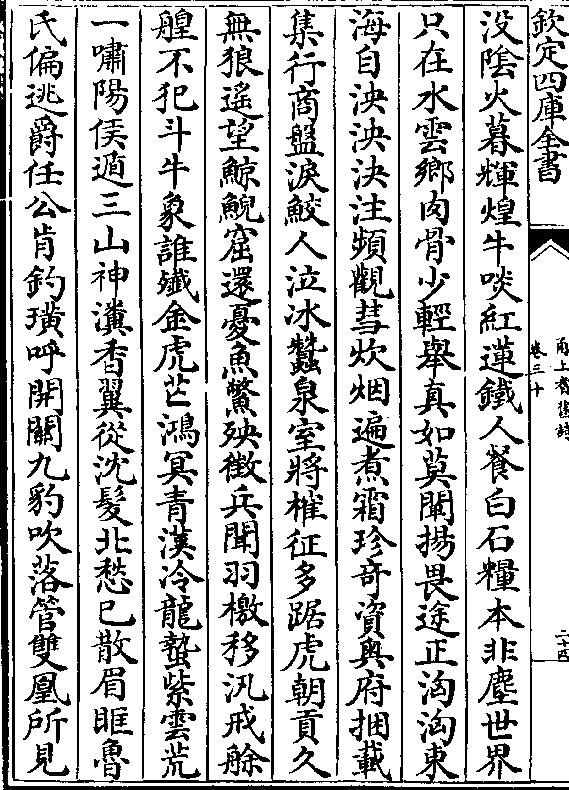 欽定四庫全書
甬上耆舊詩
卷三十
二十四
没陰火暮輝煌牛啖紅蓮鐵人餐白石糧本非塵世界
只在水雲鄉肉骨少輕舉真如莫闡揚畏途正洶洶東
海自泱泱決注頻觀彗炊烟遍煮霜珍竒資奥府捆載
集行商盤淚鮫人泣冰蠶泉室將榷征多踞虎朝貢久
無狼遥望鯨鯢窟還憂魚鱉殃徴兵聞羽檄移汛戒艅
艎不犯斗牛象誰殱金虎芒鴻冥青漢冷龍蟄紫雲荒
一嘯陽侯遁三山神瀵香翼從沈髮北愁已散眉眶魯
氏偏逃爵任公肯釣璜呼開關九豹吹落管雙凰所見